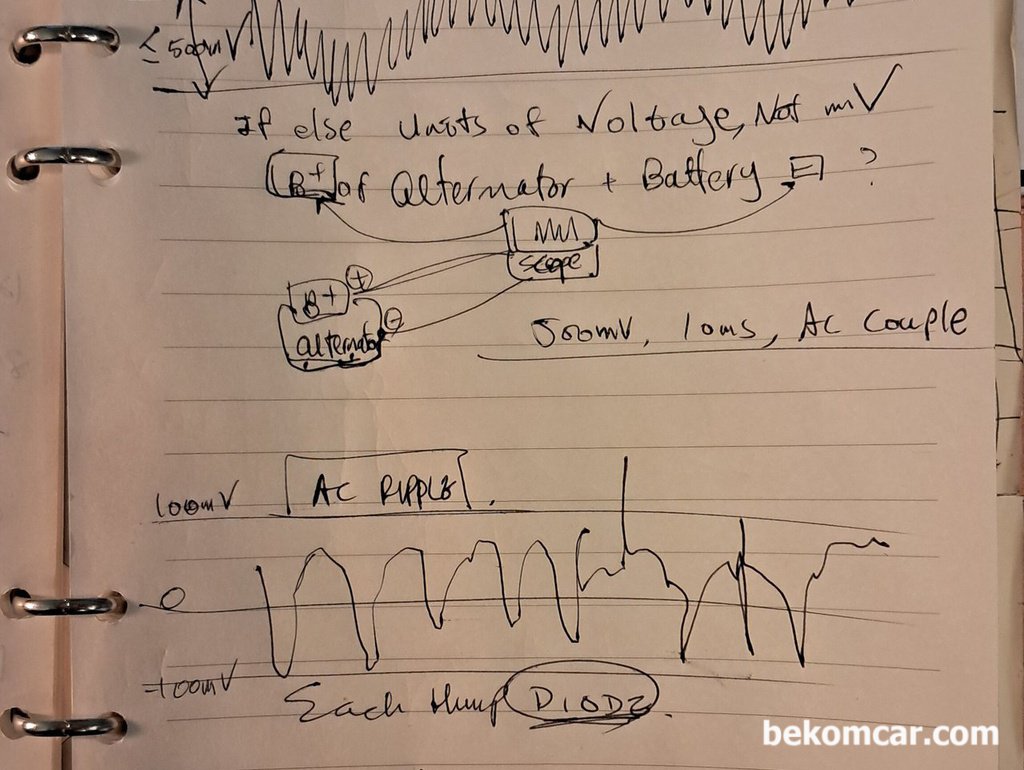 ≤ 500mV
If else units of Voltage, Not mV
B+ of alternator + Battery ⊟ ?
scope
+
B+
-
alternator
500mV, 10ms, AC couple
100mV
AC RIPPLE.
0
-100mV
Each Hump DIODE.
bekomcar.com